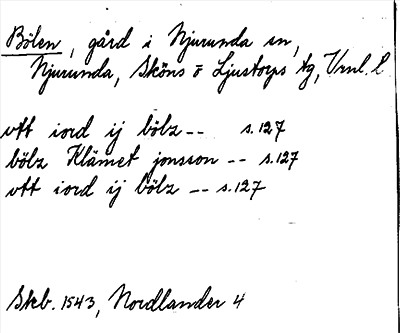 Bölen, gård i Njurunda sn,
Njurunda, Sköns ö Ljustorps tg, Vrnl. l
vtt iord ij bölz -- s.127
bölz Klämet jonsson -- s.127
vtt iord ij bölz -- s.127
Skb. 1543, Nordlander 4